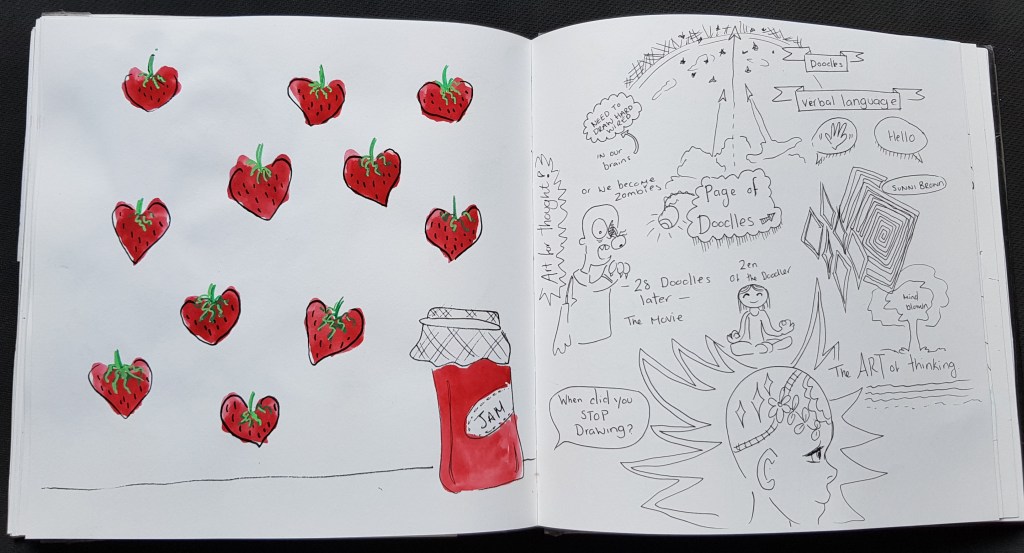 JAM
Doodles
Verbal language
NEED TO
DRAW HARD
WIRED
IN OUR
brains
Hello
or we become
Zombies
Page of
Doodles
SUNNI BROWN
Art for thought
28 Doodles
later —
The Movie
Zen
Of the Doodler
Mind
blown
The ART of thinking
When did you
STOP
Drawing?